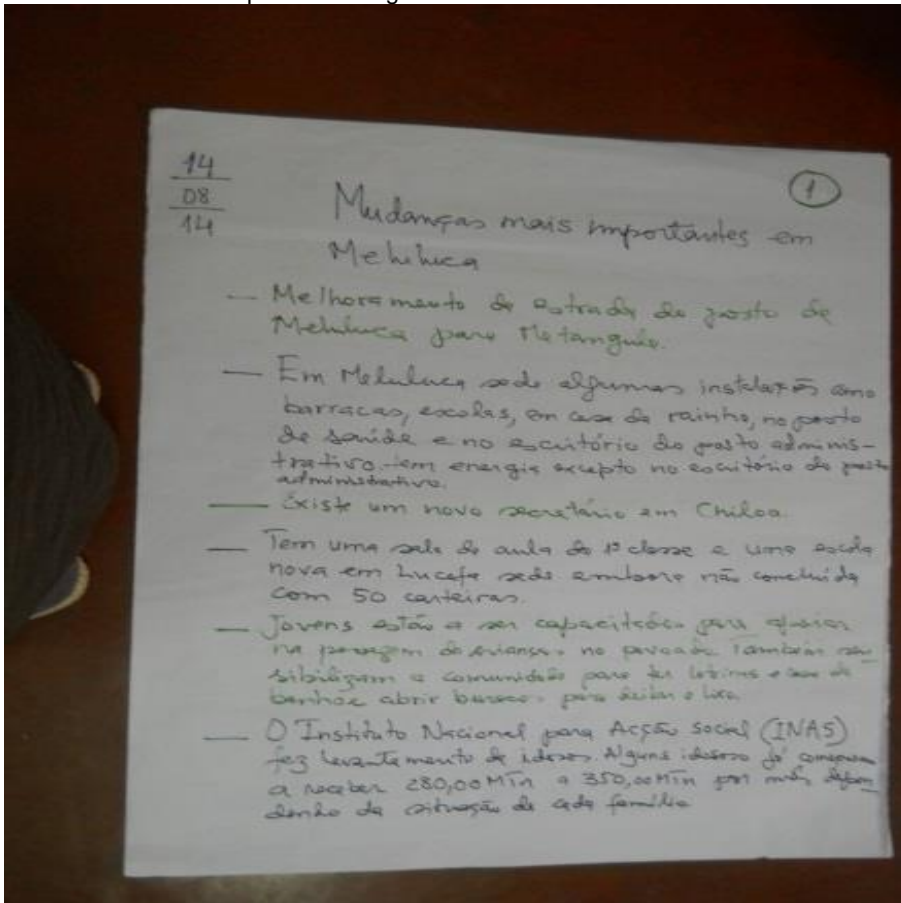 14
08
14
1
Mudanças mais importantes em
Meluluca
— Melhoramento da estrada do posto de
Meluluca para Metangula.
— Em Meluluca sede algumas instalações como
barracas, escolas, em casa da rainha, no posto
de saúde e no escritório do posto adminis-
trativo tem energia excepto no escritório do posto
administrativo.
— Existe um novo secretário em Chiloa.
— Tem uma sala de aula da 1ª classe e uma escola
nova em Lucefa sede embora não concluida
com 50 carteiras.
— Jovens estão a ser capacitados para
na pesagem de crianças no povoado também sen-
sibilizam a comunidade para ter latrinas e casa de
banho e abrir buracos para deitar o lixo.
— O Instituto Nacional para Acção social (INAS)
fez levantamento de idosos. Alguns idosos já começaram
a receber 280,00 Mtn a 350,00 Mtn por mês, depen-
denho da situação de cada família